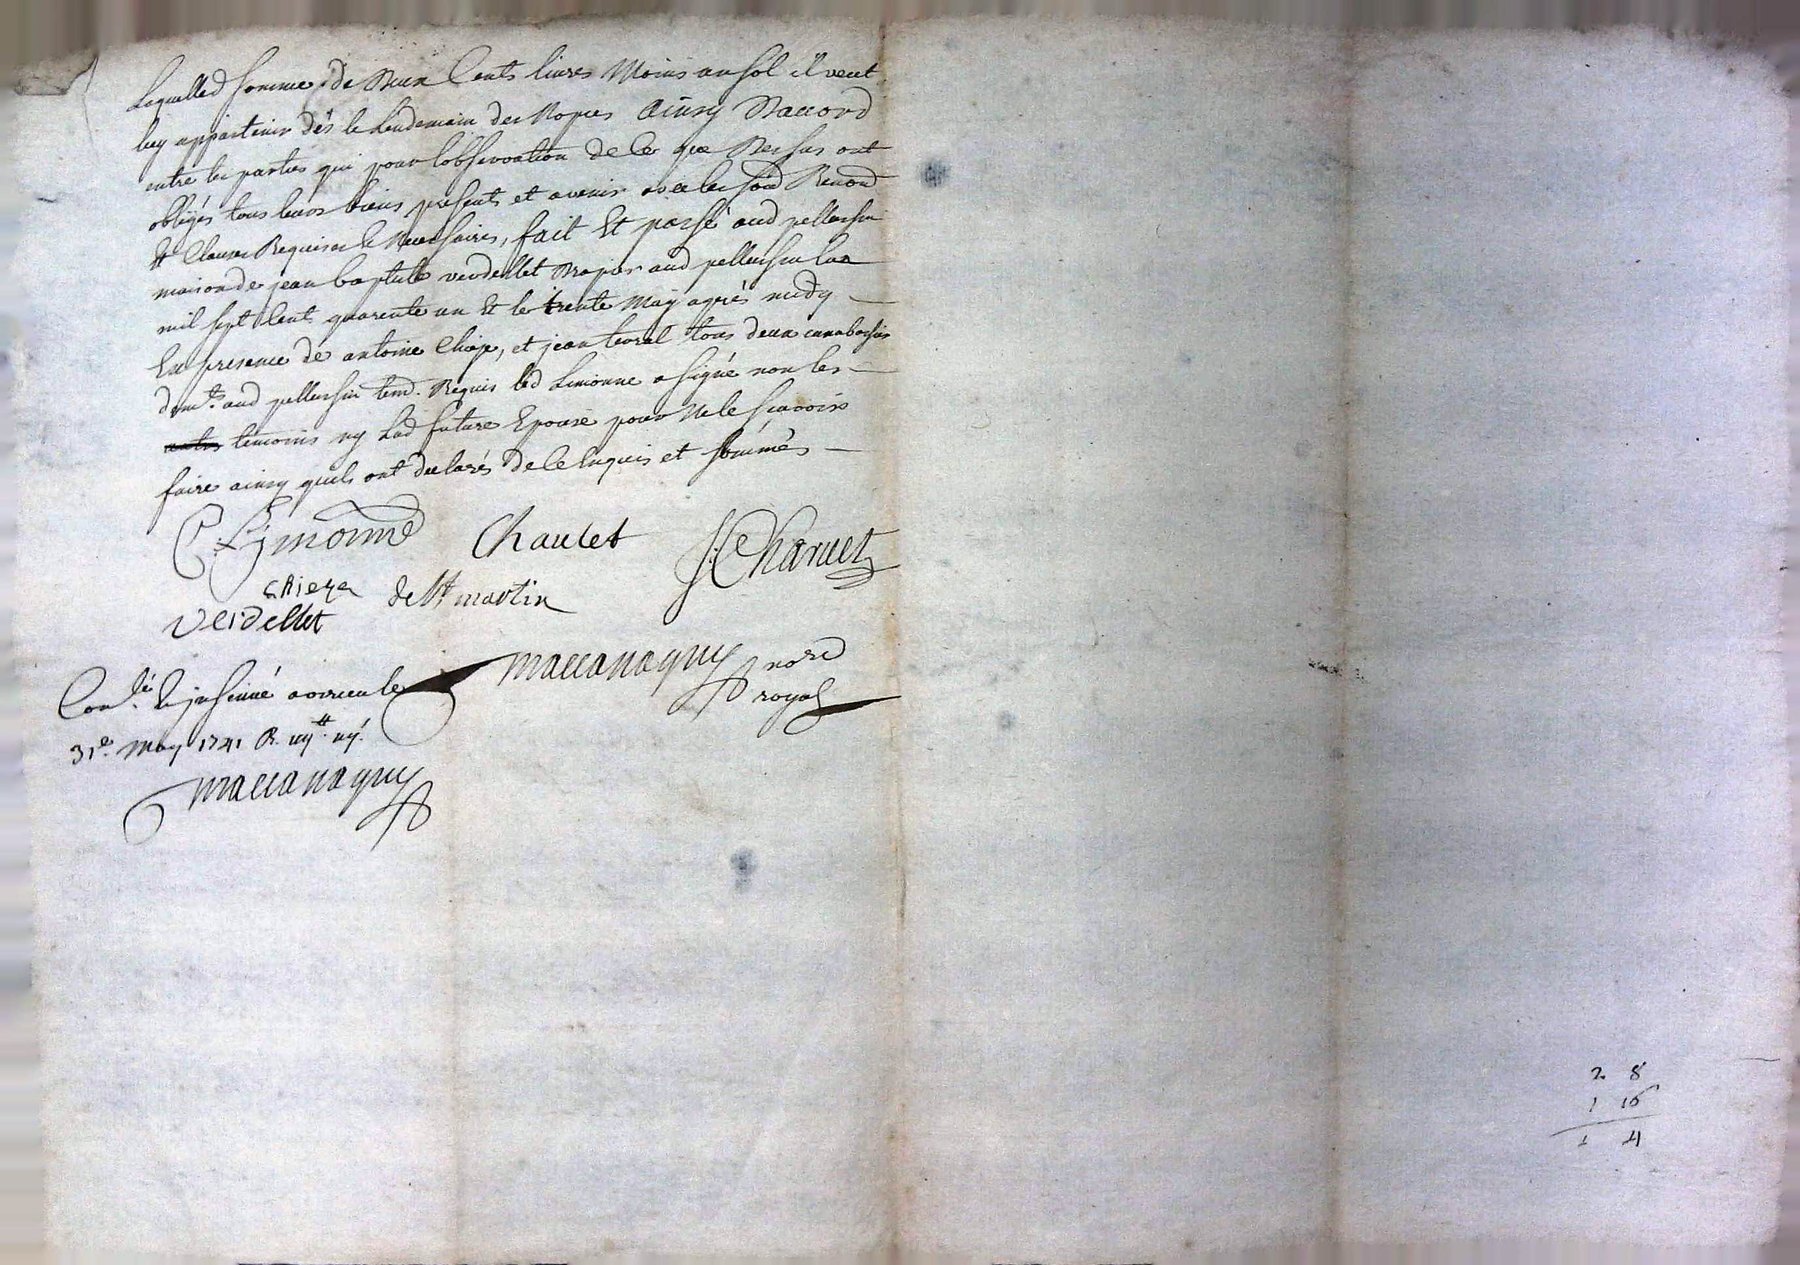 Laquelled somme de Deux Cents livres Moins un sol il veut
luy appartenir dès le Lendemain des Nopces Ainsy D'accord
entre les parties qui pour l'observation de Ce que Dessus ont
obligés tous leurs biens presents et avenir avec les
Clauses Requises & Necessaires, fait Et passé aud pellussin
maison de jean baptiste verdellet aud pellussin Lan
mil sept Cent quarente un Et le trente May après midy
En presence de antoine et jean tous deux
dem.ts aud pellussin tem. Requis led Limonne a signé non les
temoins ny Lad future Epouse pour Ne le scavoir
faire ainsy quils ont declarés de Ce Enquis et sommés
C. Lymonne Chaulet J. Charvet
Chieze de St martin
Verdellet
maccanaquy no.re
royal
Con.lé & jnsinué a le
31e. May 1741 R.
maccanaquy
2 8
1 16
1 4